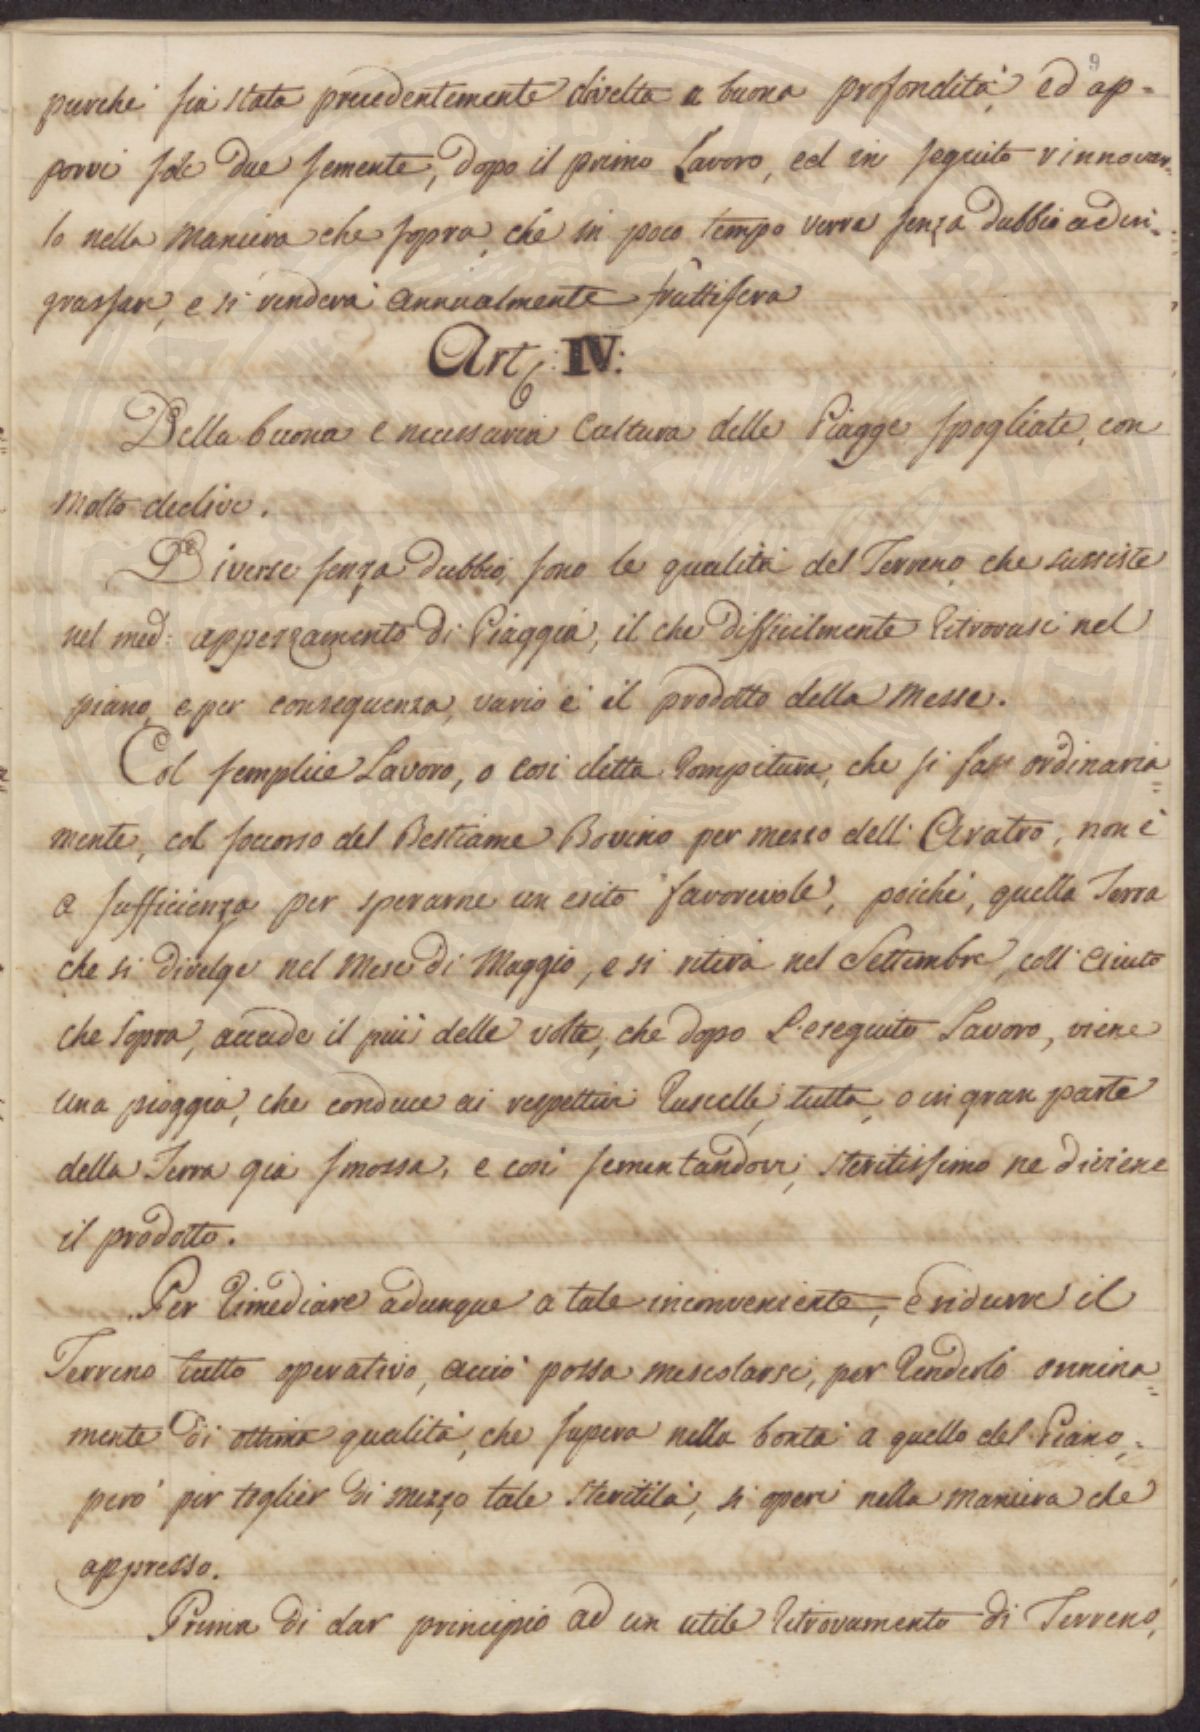 9
purchè sia stata precedentemente divelta a buona profondità, ed ap=
porvi sole due semente, dopo il primo Lavoro, ed in seguito rinnovar=
lo nella maniera che sopra, che in poco tempo verrà senza dubbio ad in=
grassare, e si renderà annualmente fruttifera
Art: IV:
Della buona e necessaria Cultura delle Piagge spogliate, con
molto declive.
Diverse senza dubbio, sono le qualità del Terreno che sussiste
nel med: appezzamento di Piaggia, il che difficilmente ritrovasi nel
piano, e per conseguenza, vario è il prodotto della Messe.
Col semplice Lavoro, o così detta Rompitura, che si fa ordinaria=
mente, col soccorso del Bestiame Bovino per mezzo dell' Aratro, non è
a sufficienza per sperarne un esito favorevole, poichè, quella Terra
che si divelge nel Mese di Maggio, e si ritira nel Settembre, coll' aiuto
che sopra, accade il più delle volte, che dopo l'eseguito Lavoro, viene
una pioggia, che conduce ai respettivi Ruscelli, tutta, o in gran parte
della Terra già smossa, e così sementandovi, sterilissimo ne diviene
il prodotto.
Per rimediare adunque a tale inconveniente, e ridurre il
Terreno tutto operativo, acciò possa mescolarsi, per renderlo onnina=
mente di ottima qualità, che supera nella bontà a quello del Piano,=
però per toglier di mezzo tale sterilità, si operi nella maniera che
appresso.
Prima di dar principio ad un utile ritrovamento di Terreno,